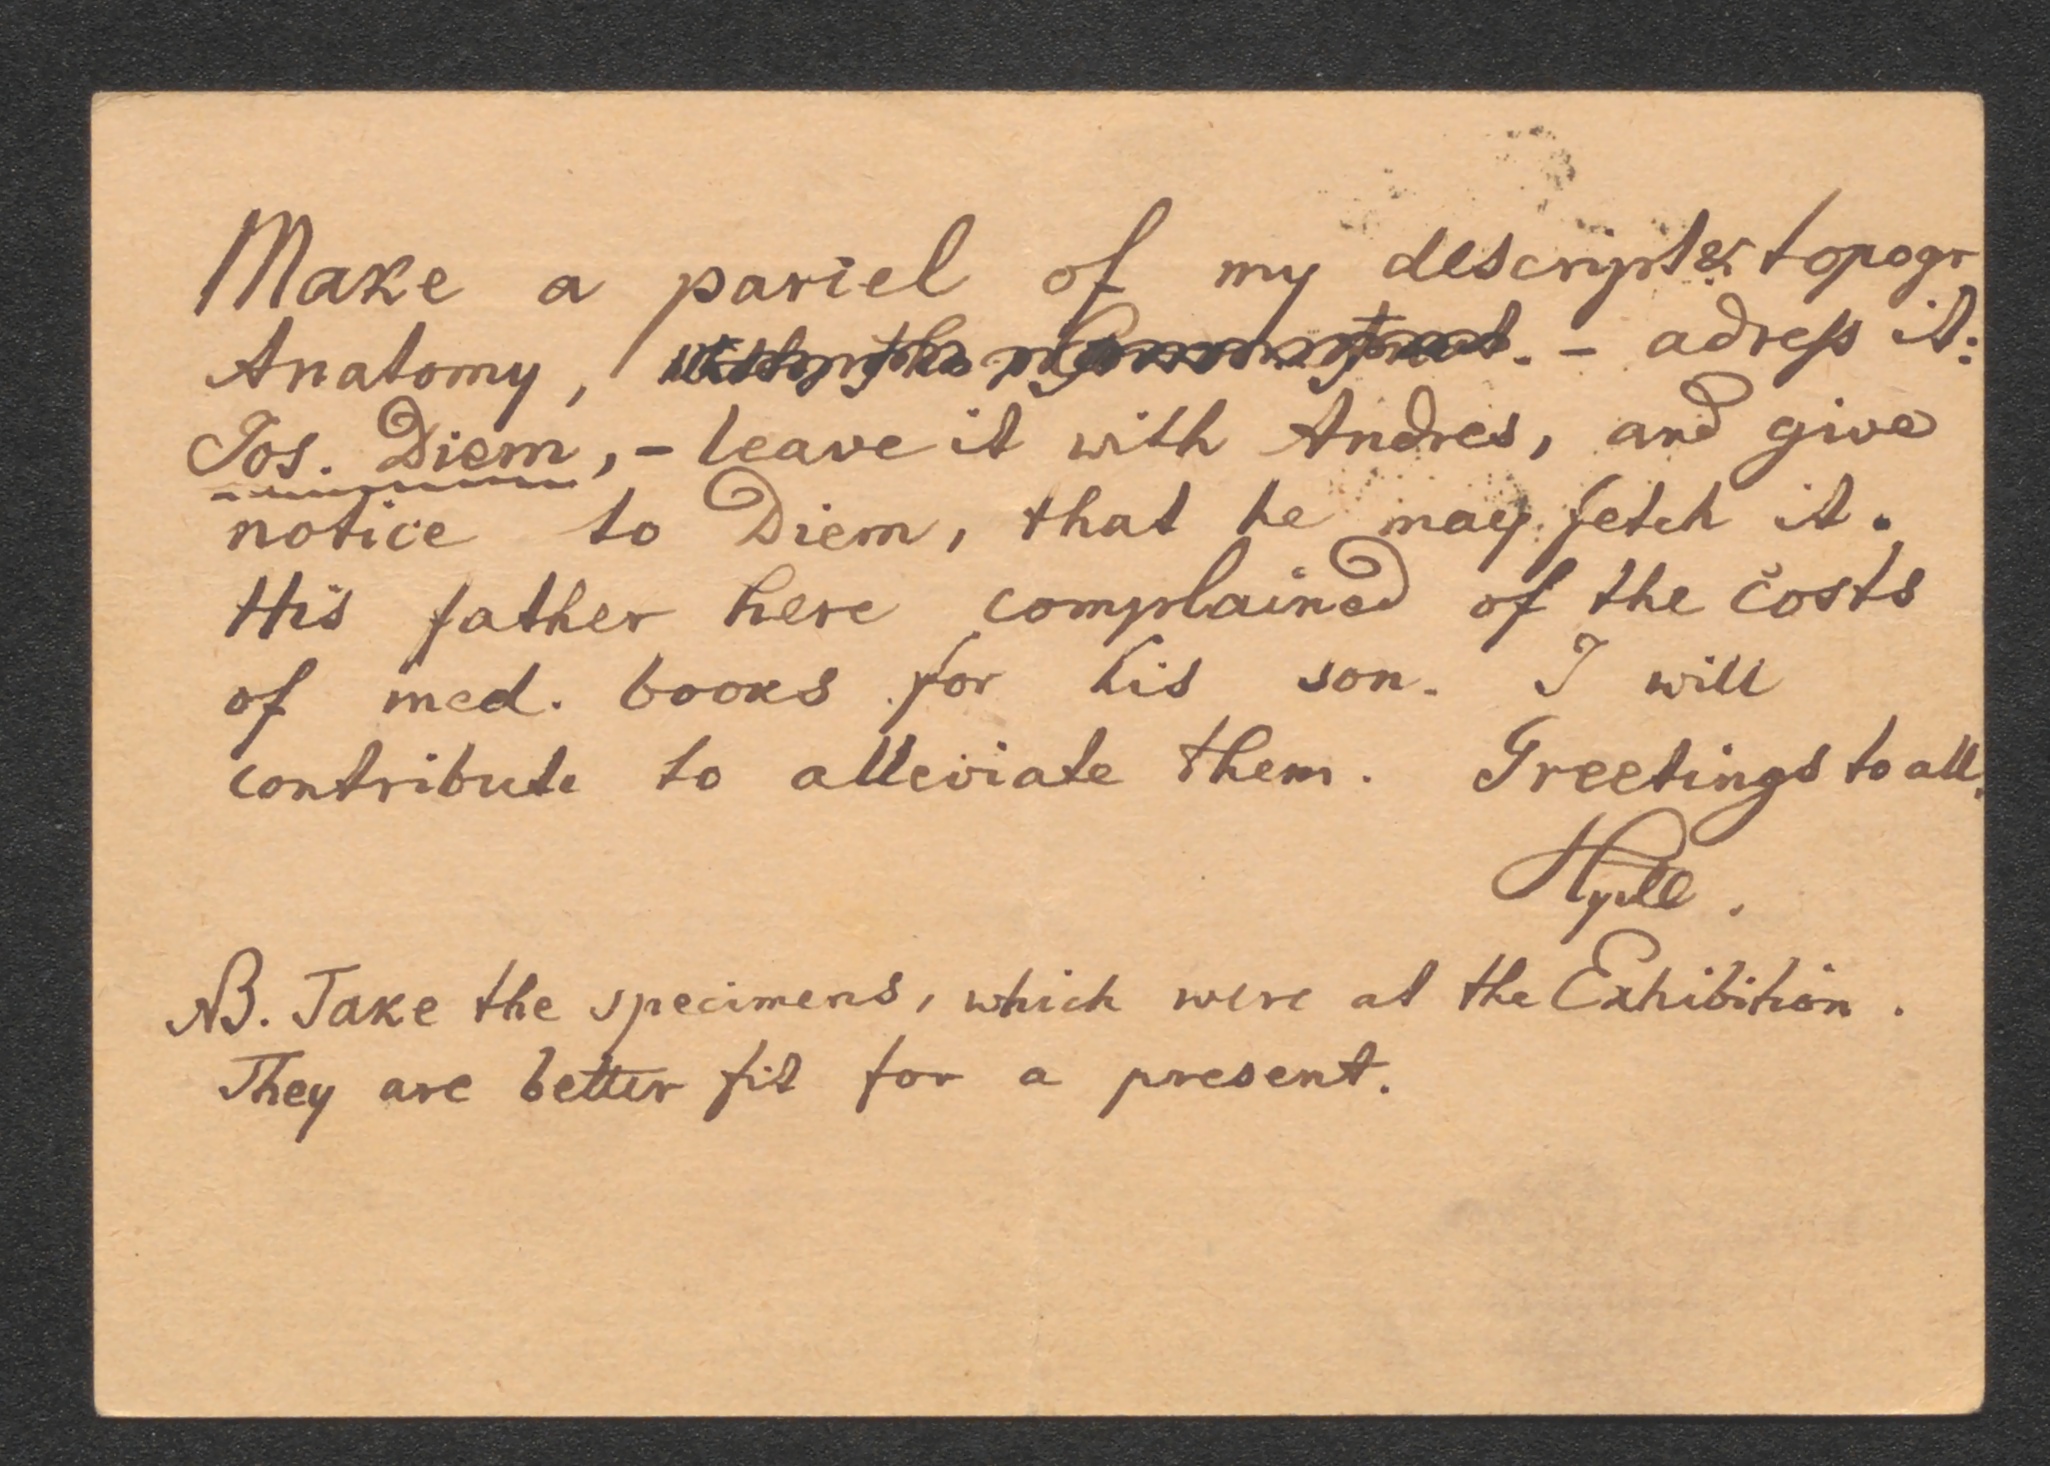 Make a parcel of my descript. & topogr
Anatomy, - adress it:
Jos. Diem, - leave it with Andres, and give
notice to Diem, that he may fetch it.
His father here complained of the costs
of med. books for his son. I will
contribute to alleviate them. Greetings to all.
Hyrtl.
NB. Take the specimens, which were at the Exhibition.
They are better fit for a present.